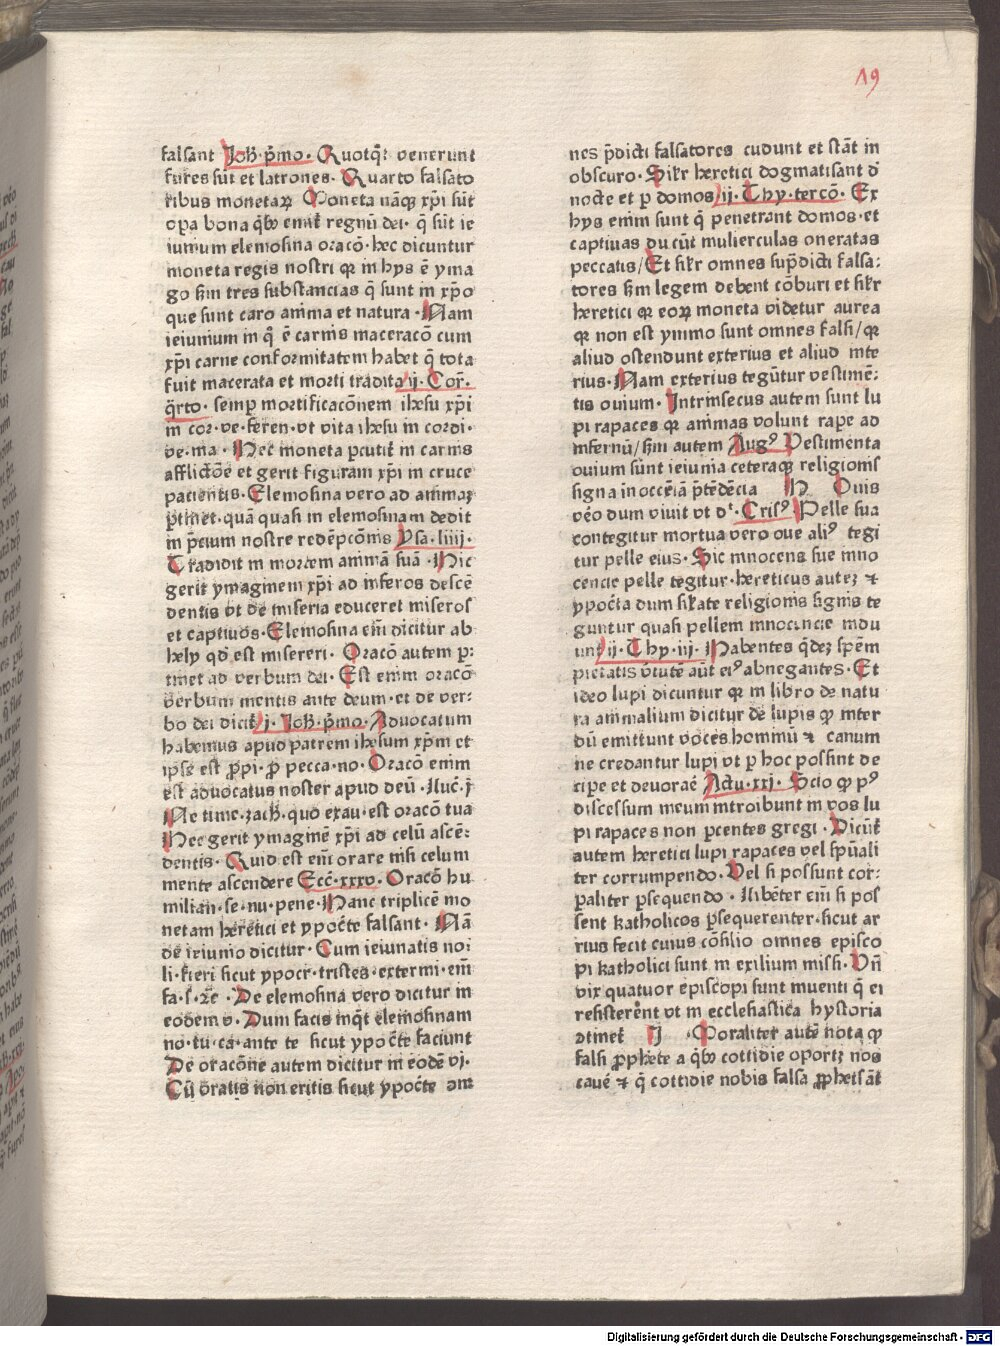 19
falsant Joh̄·p̄mo· Quotq̄t venerunt
fures sūt et latrones· Quarto falsato
ribus monetaꝝ Moneta nāqꝫ xp̄i sūt
opa bona q̄bꝫ emit̄ regnū dei· q̄ sūt ie
iunium elemosina oracō· hec dicuntur
moneta regis nostri qꝛ in hys ē yma
go scdm tres substancias q̄ sunt in xp̄o
que sunt caro amma et natura· Nam
ieiunium in q̄ ē carnis maceracō cum
xp̄i carne conformitatem habet q̄ tota
fuit macerata et morti tradita ij·Cor̄·
q̄rto· semp̲ mortificacōnem ihesu xp̄i
in cor·ve·feren·vt vita ihesu in cordi·
ve·ma· Hec moneta p̲cutit̄ in carnis
afflictōe et gerit figuram xp̄i in cruce
pacientis· Elemosina vero ad animaꝫ
p̲tinet·quā quasi in elemosinam dedit
in p̄cium nostre redēpcōnis Ysa·liiij·
Tradidit in mortem animā suā· Hic
gerit ymaginem xp̄i ad inferos descē
dentis vt de miseria educeret miseros
et captiuos· Elemosina em̄ dicitur ab
hely qd̄ est misereri· Oracō autem p̲:
tinet ad verbum dei· Est enim oracō
verbum mentis ante deum·et de ver:
bo dei dicit̄ j·Joh̄·p̄mo· Aduocatum
habemus apud patrem ihesum xp̄m et
ipse est p̱pi·p̱ pecca·no· Oracō enim
est aduocatus noster apud deū·Luc̄·j̄
Ne time·zach̄·quō exau·est oracō tua
Hec gerit ymaginē xp̄i ad celū ascē:
dentis· Quid est em̄ orare nisi celum
mente ascendere Ecc̄·xxxv· Oracō hu
milian·se·nu·pene· Hanc triplicē mo
netam heretici et ypocr̄te falsant· Nā
de ieiunio dicitur· Cum ieiunatis no:
li·fieri sicut ypocr̄·tristes·extermi·em̄
fa·s·ꝛc̄· De elemosina vero dicitur in
eodem v· Dum facis inq̄t elemosinam
no·tu·ca·ante te sicut ypocr̄te faciunt
De oracōne autem dicitur in eodē vj·
Cū oratis non eritis sicut ypocr̄te om
nes p̄dicti falsatores cudunt et stāt in
obscuro· Silr heretici dogmatisant d̄
nocte et p̲ domos ij·Thy·tercō· Ex
hys enim sunt q̄ penetrant domos·et
captiuas ducūt mulierculas oneratas
peccatis/ Et silr omnes sup̄dicti falsa:
tores scdm legem debent cōburi et silr
heretici qꝛ eoꝝ moneta videtur aurea
qꝛ non est ymmo sunt omnes falsi/qꝛ
aliud ostendunt exterius et aliud inte
rius· Nam exterius tegūtur vestimē:
tis ouium· Intrinsecus autem sunt lu
pi rapaces qꝛ animas volunt rape ad
infernū/scdm autem Augꝰ Vestimenta
ouium sunt ieiunia ceteraqꝫ religionis
signa in occēia p̄tēdēcia H Ouis
vēo dum viuit vt dt·Crisꝰ· Pelle sua
contegitur mortua vero oue aliꝰ tegi
tur pelle eius· Sic innocens sue inno
cencie pelle tegitur·hereticus auteꝫ ⁊
ypoc̄ta dum silate religionis signis te
guntur quasi pellem innocencie indu
unt ij·Thy·iij· Habentes q̄deꝫ spēm
pietatis v̄tutē aūt eiꝰ abnegantes· Et
ideo lupi dicuntur qꝛ in libro de natu
ra animalium dicitur de lupis ꝙ inter
dū emittunt voces hominū ⁊ canum
ne credantur lupi vt p̲ hoc possint de
cipe et deuorare Actu·xxj· Scio ꝙ pꝰ
discessum meum introibunt in vos lu
pi rapaces non p̲centes gregi· Dicūt̄
autem heretici lupi rapaces vel spūali
ter corrumpendo· Vel si possunt cor:
p̲aliter p̲sequendo· Libēter em̄ si pos
sent katholicos p̲sequerenter·sicut ar
rius fecit cuius cōsilio omnes episco
pi katholici sunt in exilium missi· Vn̄
vix quatuor episcopi sunt inuenti q̄ ei
resisterent vt in ecclesiastica hystoria
ↄtinet̄ J Moraliter autē nota ꝙ
falsi ꝓphete a q̄bꝫ cottidie oportꝫ nos
cauē ⁊ q̄ cottidie nobis falsa ꝓphetāt
Digitalisierung gefördert durch die Deutsche Forschungsgemeinschaft - DFG